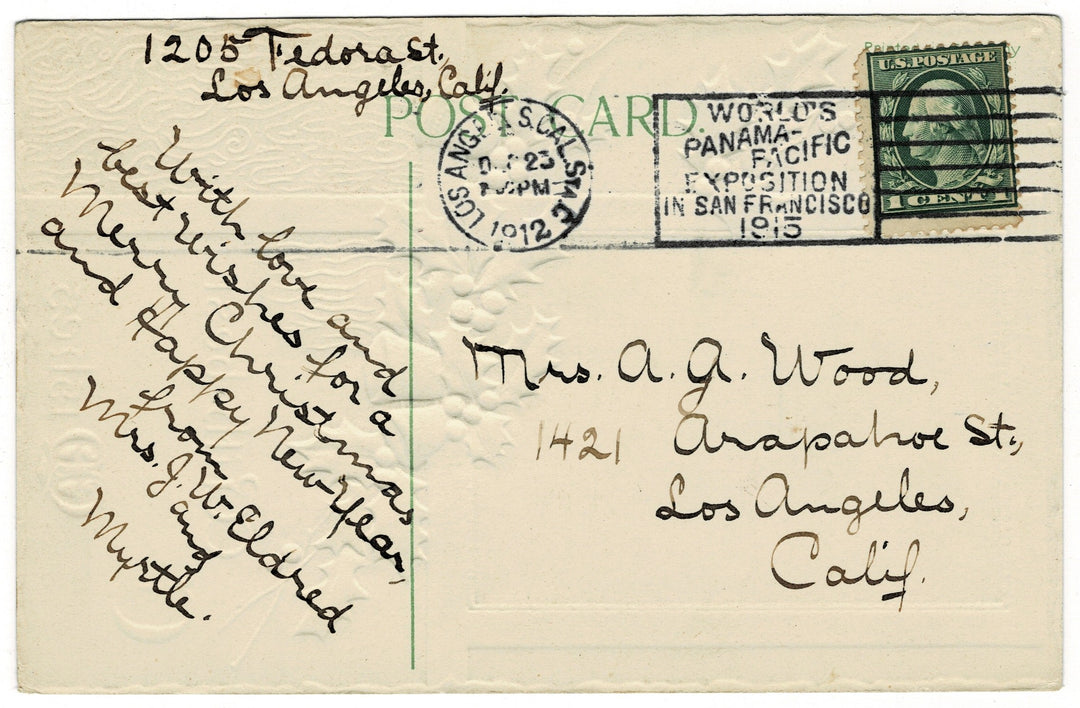 1205 Fedora St.,
Los Angeles, Calif.
POST CARD.
Printed
U.S. POSTAGE
1 CENT 1
LOS ANGELES, CAL. STA. C
DEC 23
PM
1912
WORLD'S
PANAMA-
PACIFIC
EXPOSITION
IN SAN FRANCISCO
1915
With love and
best wishes for a
Merry Christmas
and Happy New Year,
from
Mrs. J. W. Eldred
and
Myrtle.
Mrs. A. A. Wood,
1421 Arapahoe St.,
Los Angeles,
Calif.